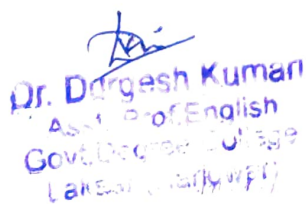 Dr. Durgesh Kumari
Asst. Prof. English
Govt. Degree College